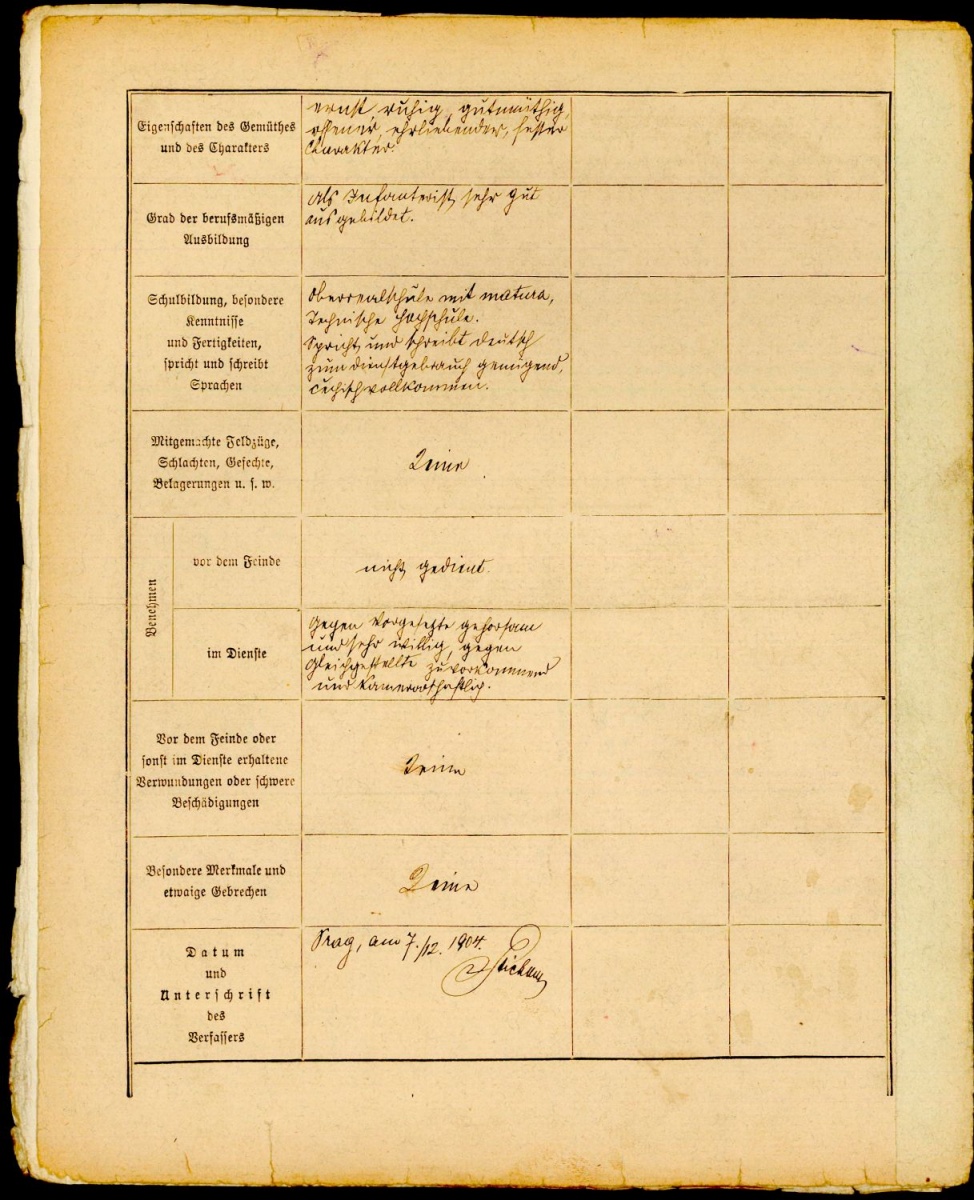 Eigenschaften des Gemüthes
und des Charakters
ernst, ruhig, gutmüthig,
offener, ehrliebender, fester
Charakter.
Grad der berufsmäßigen
Ausbildung
als Infanterist sehr gut
ausgebildet.
Schulbildung, besondere
Kenntnisse
und Fertigkeiten,
spricht und schreibt
Sprachen
Oberrealschule mit matura,
Technische Hochschule.
Spricht und schreibt deutsch
zum dienstgebrauch genügend,
čechisch vollkommen.
Mitgemachte Feldzüge,
Schlachten, Gefechte,
Belagerungen u. s. w.
Keine
Benehmen
vor dem Feinde
nicht gedient.
im Dienste
Gegen Vorgesetzte gehorsam
und sehr willig, gegen
Gleichgestellte zuvorkommend
und kameradschaftlich.
Vor dem Feinde oder
sonst im Dienste erhaltene
Verwundungen oder schwere
Beschädigungen
Keine
Besondere Merkmale und
etwaige Gebrechen
Keine
Datum
und
Unterschrift
des
Verfassers
Prag, am 7./12. 1904.